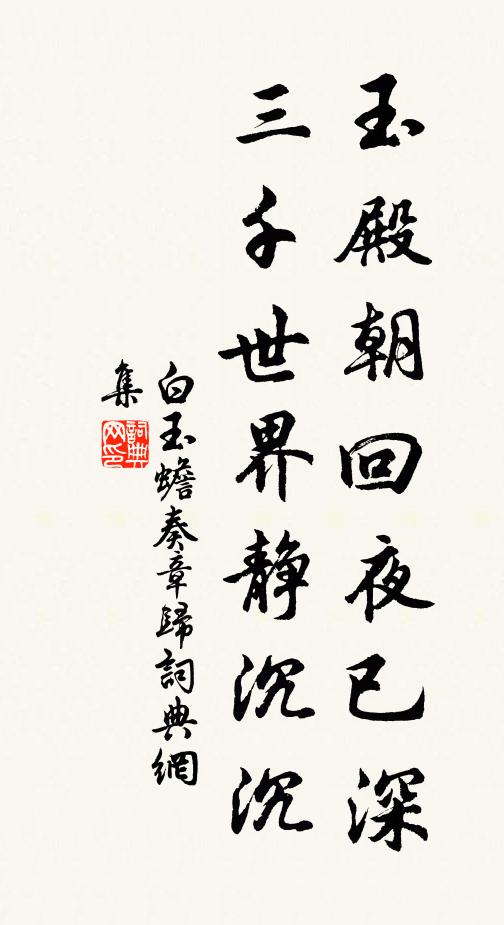 玉殿朝回夜已深
三千世界静沉沉
白玉蟾奏章歸詞典網
集
詞典
网印